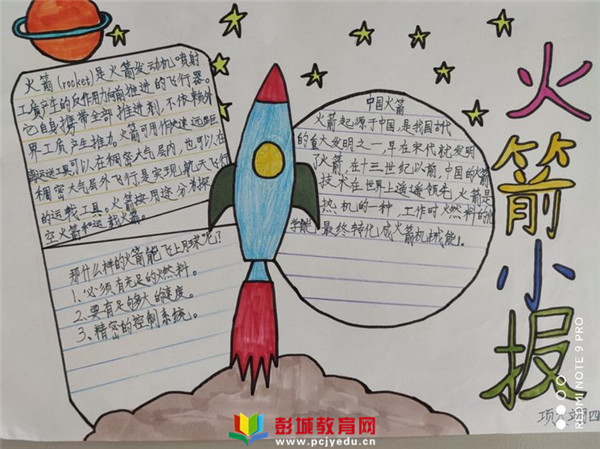 火箭(rocket)是火箭发动机喷射
工质产生的反作用力向前推进的飞行器。
它自身携带全部推进剂,不依赖外
界工质产生推力。火箭可用作快速远距
送工具可以在稠密大气层内,也可以在
稠密大气层外飞行是实现航天飞行
的运载工具。火箭按用途分为探
空火箭和运载火箭。
那什么样的火箭能飞上月球呢?
1、必须有充足的燃料。
2、要有足够大的速度。
3、精密的控制系统。
中国火箭
火箭起源于中国,是我国古代
的重大发明之一,早在宋代就发明
了火箭,在十三世纪以前,中国的火箭
技术在世界上遥遥领先,火箭是
热机的一种,工作时燃料的化
学能最终转化成火箭机械能。
火箭小报
项
四
REDMI NOTE 9 PRO
彭城教育网
www.pcjyedu.cn